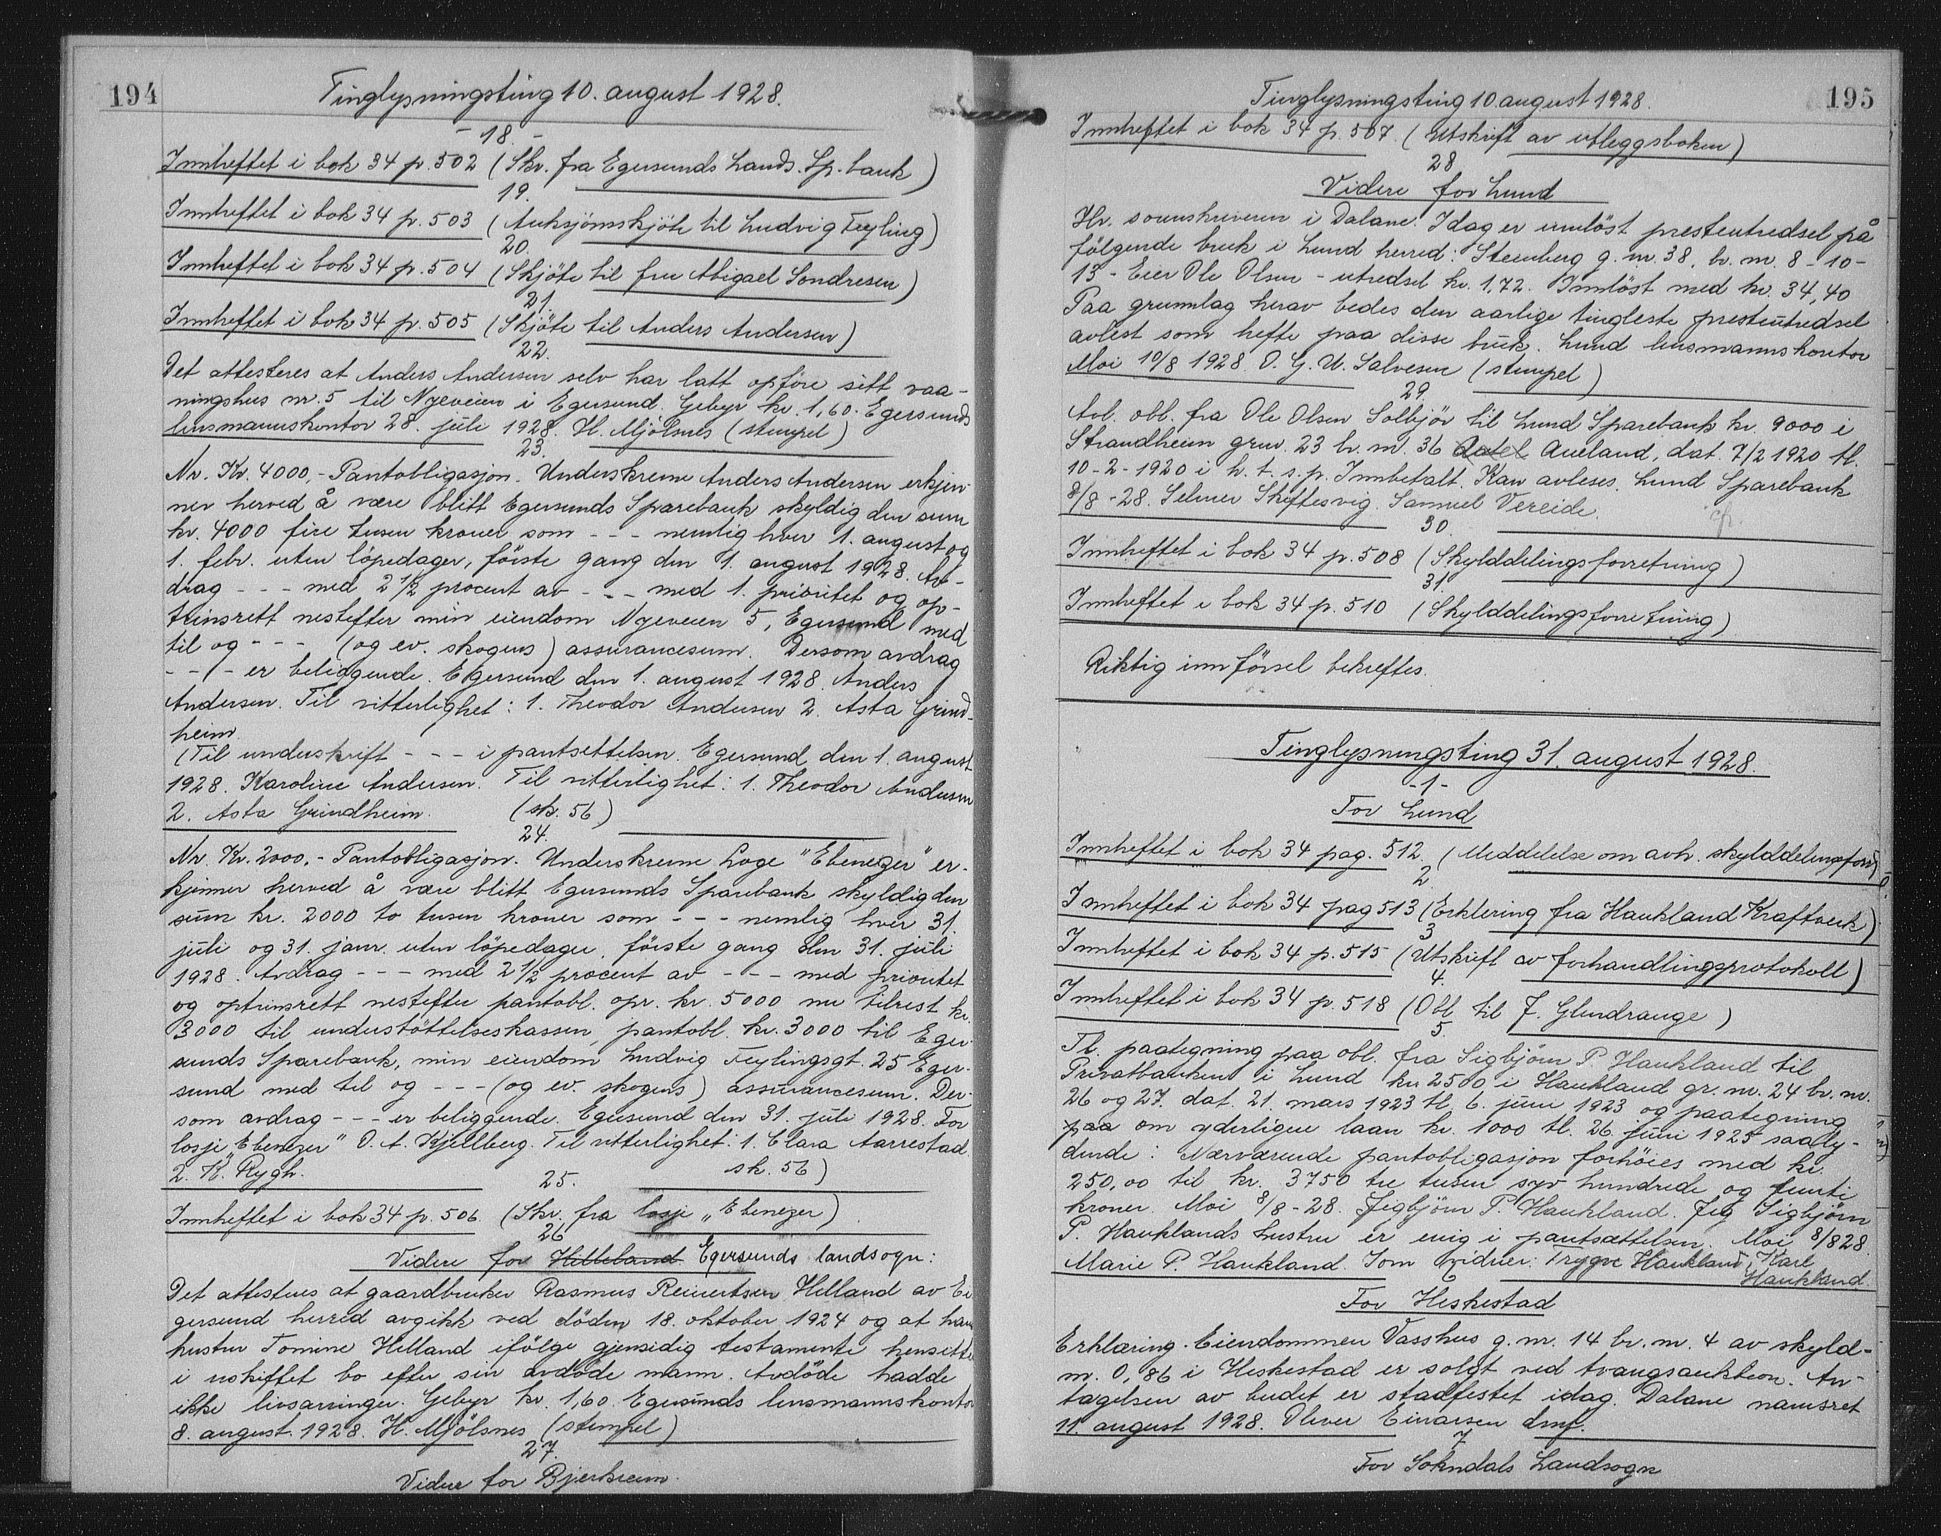 194
Tinglysningsting 10. august 1928.
- 18. -
Innheftet i bok 34 p. 502 (Skr. fra Egersunds Lands. Sp. bank)
19.
Innheftet i bok 34 p. 503 (Auksjonsskjöte til Ludvig Feyling)
20.
Innheftet i bok 34 p. 504 (Skjöte til fru Abigael Sondresen)
21.
Innheftet i bok 34 p. 505 (Skjöte til Anders Andersen)
22.
Det attesteres at Anders Andersen selv har latt opföre sitt vaa-
ningshus nr. 5 til Nyeveien i Egersund. Gebyr kr. 1,60. Egersunds
lensmannskontor 28. juli 1928. H. Mjölsnes (stempel)
23.
Nr. Kr. 4000,- Pantobligasjon. Underskrevne Anders Andersen erkjen-
ner herved å være blitt Egersunds Sparebank skyldig den sum
kr. 4000 fire tusen kroner som - - - nemlig hver 1. august og
1. febr. uten löpedager, förste gang den 1. august 1928. Av-
drag - - - med 2 1/2 procent av - - - med 1. prioritet og op-
trinsrett nestefter min eiendom Nyeveien 5, Egersund med
til og - - - (og ev. skogens) assurancesum. Dersom avdrag
- - - er beliggende. Egersund den 1. august 1928. Anders
Andersen. Til vitterlighet: 1. Theodor Andersen 2. Asta Grind-
heim.
(Til underskrift - - - i pantsettelsen. Egersund den 1. august
1928. Karoline Andersen. Til vitterlighet: 1. Theodor Andersen
2. Asta Grindheim. (sk. 56)
24.
Nr. Kr. 2000,- Pantobligasjon. Underskrevne Loge "Ebenezer" er-
kjenner herved å være blitt Egersunds Sparebank skyldig den
sum kr. 2000 to tusen kroner som - - - nemlig hver 31.
juli og 31. janr. uten löpedager, förste gang den 31. juli
1928. Avdrag - - - med 2 1/2 procent av - - - med prioritet
og optrinsrett nestefter pantobl. opr. kr. 5000 nu tilrest kr.
3000 til understöttelseskassen, pantobl. kr. 3000 til Eger-
sunds Sparebank, min eiendom Ludvig Feylingsgt. 25 Eger-
sund med til og - - - (og ev. skogens) assurancesum. Der-
som avdrag - - - er beliggende. Egersund den 31. juli 1928. For
losje "Ebenezer" O. A. Kjellberg. Til vitterlighet: 1. Clara Aarrestad
2. K. Rygh. sk. 56)
25.
Innheftet i bok 34 p. 506. (Skr. fra losje "Ebenezer)
26
Videre for Helleland Egersunds landsogn:
Det attesteres at gaardbruker Rasmus Reinertsen Helland av E-
gersund herred avgikk ved döden 18. oktober 1924 og at hans
hustru Tomine Helland ifölge gjensidig testamente hensitter
i uskiftet bo efter sin avdöde mann. Avdöde hadde
ikke livsarvinger. Gebyr kr. 1,60. Egersunds lensmannskontor
8. august 1928. H. Mjölsnes (stempel)
27.
Videre for Bjerkreim.
195
Tinglysningsting 10 august 1928.
Innheftet i bok 34 p. 507. (Utskrift av utleggsboken)
28
Videre for Lund
Hr. sorenskriveren i Dalane. Idag er innlöst presteutredsel på
fölgende bruk i Lund herred: Steinberg g. nr. 38, br. nr. 8 - 10 -
13 - Eier Ole Olsen - utredsel kr. 1,72. Innlöst med kr. 34,40
Paa grunnlag herav bedes den aarlige tingleste presteutredsel
avlest som hefte paa disse bruk. Lund lensmannskontor
Moi 10/8 1928. O. G. U. Salvesen (stempel)
29.
Avl. obl. fra Ole Olsen Solbjör til Lund Sparebank kr. 9000 i
Strandheim grnr. 23 br. nr. 36 datel Aueland, dat. 7/2 1920 tl.
10-2-1920 i h. t. s. p. Innbetalt. Kan avleses. Lund Sparebank
8/8-28. Selmer Skiftesvig. Samuel Vereide.
30.
Innheftet i bok 34 p. 508 (Skylddelingsforretning)
31
Innheftet i bok 34 p. 510 (Skylddelingsforretning)
Riktig innförsel bekreftes.
Tinglysningsting 31. august 1928.
-1-
For Lund
Innheftet i bok 34 pag. 512. (Meddelelse om avh. skylddelingsforr.)
2
Innheftet i bok 34 pag 513 (Erklering fra Haukland Kraftverk)
3
Innheftet i bok 34 p. 515 (Utskrift av forhandlingsprotokoll)
4.
Innheftet i bok 34 p. 518 (Obl. til J. Glendrange)
5
Tl. paategning paa obl. fra Sigbjörn P. Haukland til
Privatbanken i Lund kr. 2500 i Haukland gr. nr. 24 br. nr.
26 og 27. dat. 21. mars 1923 tl. 6. juni 1923 og paategning
paa om yderligere laan kr. 1000 tl. 26. juni 1925 saaly-
dende: Nærværende pantobligasjon forhöies med kr.
250,00 til kr. 3750 tre tusen syv hundrede og femti
kroner. Moi 8/8-28. Sigbjörn P. Haukland. Jeg Sigbjörn
P. Hauklands hustru er enig i pantsættelsen. Moi 8/8 28.
Marie P. Haukland. Som vidner: Trygve Haukland, Karl
Haukland.
For Heskestad
Erklæring. Eiendommen Vasshus g. nr. 14 br. nr. 4 av skyld-
m. 0,86 i Heskestad er solgt ved tvangsauktion. An-
tagelsen av budet er stadfestet idag. Dalane namsret
11 august 1928. Oliver Einarsen dmf.
7
For Sokndals Landsogn